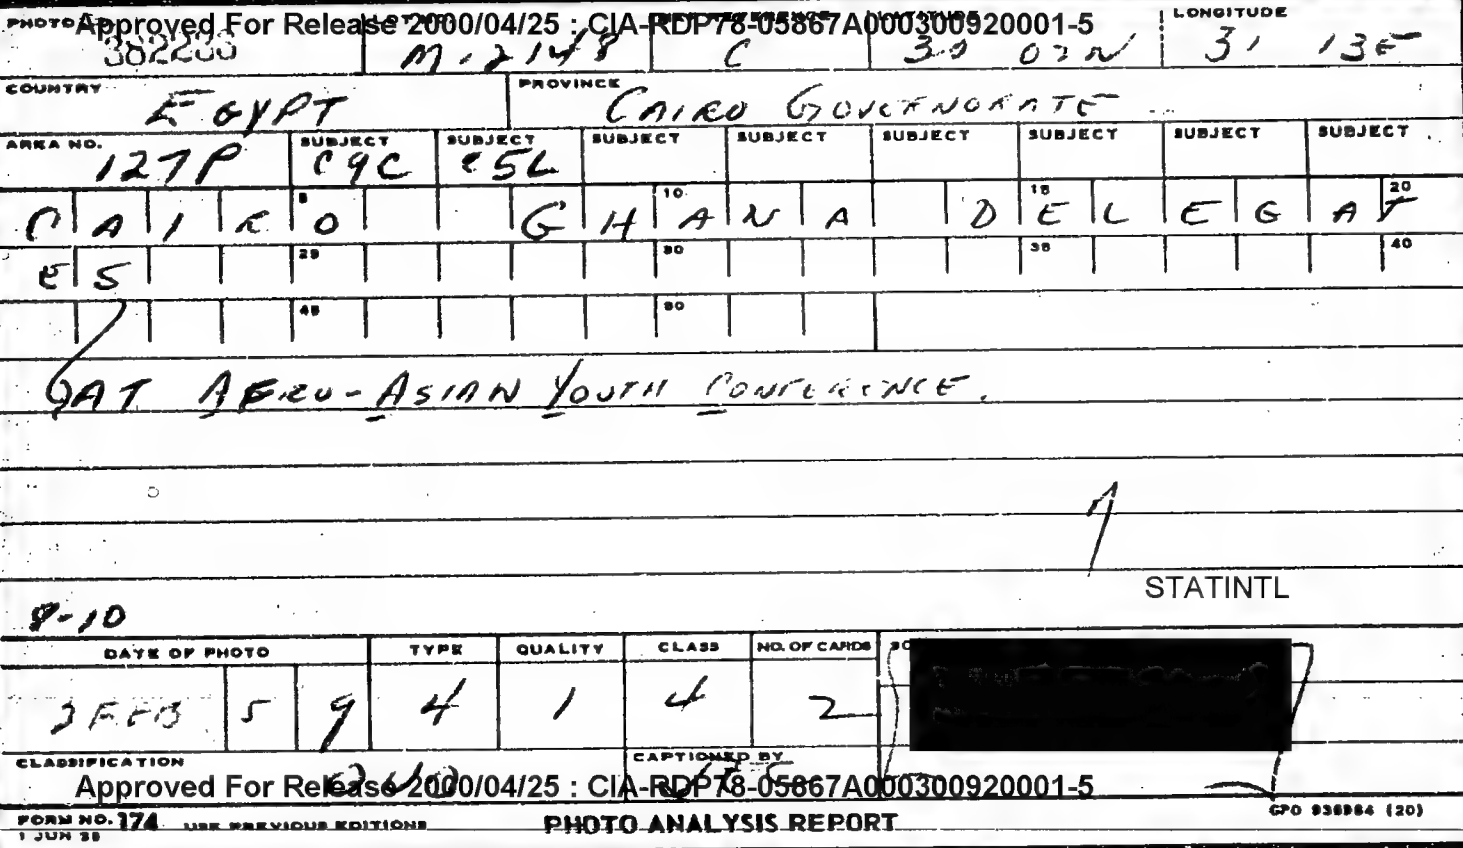 PHOTO Approved For Release 2000/04/25 : CIA-RDP78-05867A000300920001-5 LONGITUDE
382236 M-2148 C 30 02N 31 13E
COUNTRY PROVINCE
EGYPT CAIRO GOVERNORATE
AREA NO. SUBJECT SUBJECT SUBJECT SUBJECT SUBJECT SUBJECT SUBJECT SUBJECT
127P C9C C5L
5 10 15 20
CAIRO GHANA DELEGAT
25 30 35 40
ES
45 50
AT AFRO-ASIAN YOUTH CONFERENCE.
STATINTL
8-10
DATE OF PHOTO TYPE QUALITY CLASS NO. OF CARDS
3 FEB 5 9 4 1 4 2
CLASSIFICATION CAPTIONED BY
Approved For Release 2000/04/25 : CIA-RDP78-05867A000300920001-5
FORM NO. 174 USE PREVIOUS EDITIONS PHOTO ANALYSIS REPORT GPO 936964 (20)
1 JUN 58